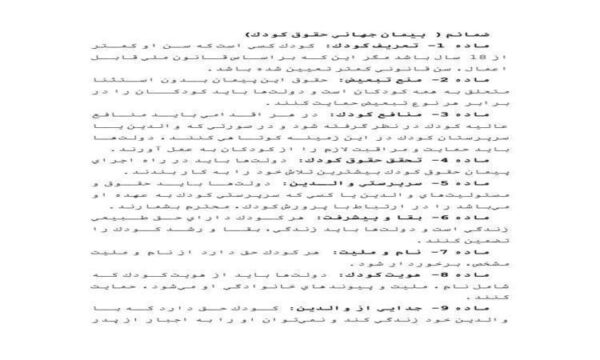 ضمائم ( پیمان جهانی حقوق کودک)
ماده 1- تعریف کودک: کودک کسی است که سن او کمتر
از 18 سال باشد مگر این که بر اساس قانون ملی قابل
اعمال، سن قانونی کمتر تعیین شده باشد.
ماده 2- منع تبعیض: حقوق این پیمان بدون استثنا
متعلق به همه کودکان است و دولت‌ها باید کودکان را در
برابر هر نوع تبعیض حمایت کنند.
ماده 3- منافع کودک: در هر اقدامی باید منافع
عالیه کودک در نظر گرفته شود و در صورتی که والدین یا
سرپرستان کودک در این زمینه کوتاهی کنند، دولت‌ها
باید حمایت و مراقبت لازم را از کودکان به عمل آورند.
ماده 4- تحقق حقوق کودک: دولت‌ها باید در راه اجرای
پیمان حقوق کودک بیشترین تلاش خود را به کار بندند.
ماده 5- سرپرستی والدین: دولت‌ها باید حقوق و
مسئولیت‌های والدین یا کسی که سرپرستی کودک به عهده او
می‌باشد را در ارتباط با پرورش کودک، محترم بشمارند.
ماده 6- بقا و پیشرفت: هر کودک دارای حق طبیعی
زندگی است و دولت‌ها باید زندگی، بقا و رشد کودک را
تضمین کنند.
ماده 7- نام و ملیت: هر کودک حق دارد از نام و ملیت
مشخص، برخوردار شود.
ماده 8- هویت کودک: دولت‌ها باید از هویت کودک که
شامل نام، ملیت و پیوندهای خانوادگی او می‌شود، حمایت
کنند.
ماده 9- جدایی از والدین: کودک حق دارد که با
والدین خود زندگی کند و نمی‌توان او را به اجبار از پدر